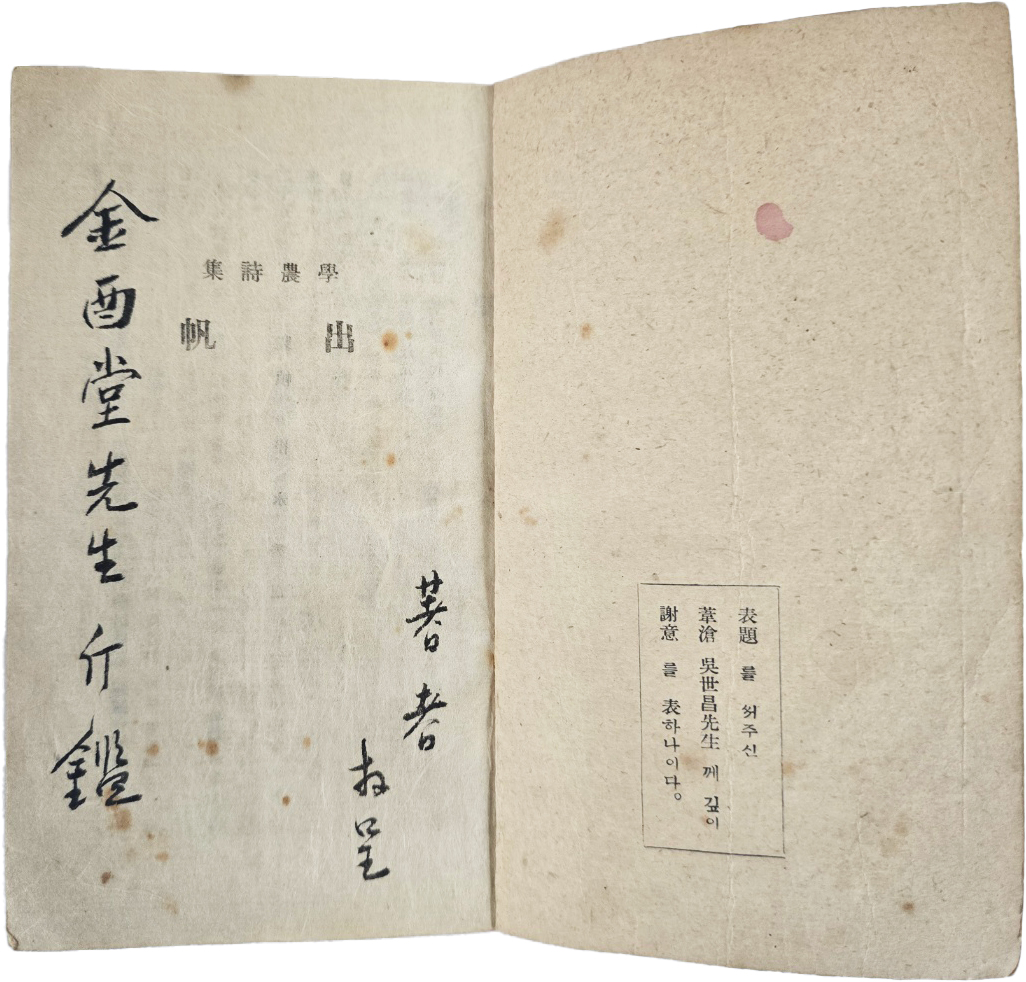 表題 를 써주신
葦滄 吳世昌先生 께 깊이
謝意 를 表하나이다。
學農詩集
出帆
著者
拜呈
金酉堂先生 斤鑑